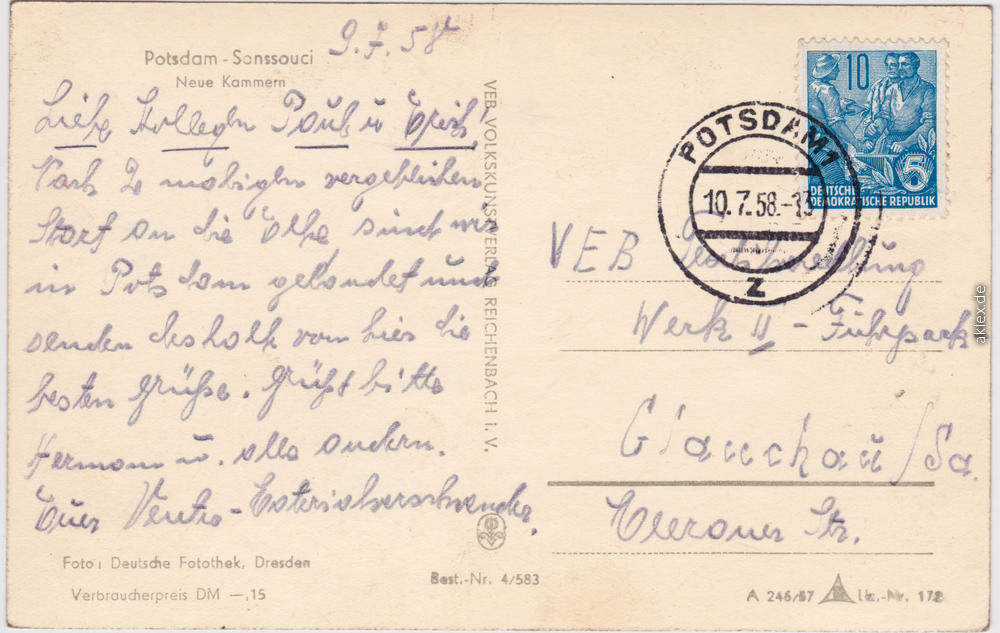 9.7.58
Potsdam - Sanssouci
Neue Kammern
Liebe Kollegen Paul u. Erich,
Nach 2 maligen vergeblichen
Start an die Elbe sind wir
in Potsdam gelandet und
senden deshalb von hier die
besten Grüße. Grüßt bitte
Hermann u. alle andern.
Euer
VEB VOLKSKUNSTVERLAG REICHENBACH I. V.
10
5
DEUTSCHE
DEMOKRATISCHE REPUBLIK
POTSDAM 1
10.7.58.-13
Z
VEB
Werk II - Fuhrpark
Glauchau/Sa.
Meeraner Str.
Foto: Deutsche Fotothek, Dresden
Verbraucherpreis DM —,15
Best.-Nr. 4/583
A 246/57 Liz.-Nr. 172
aklex.de